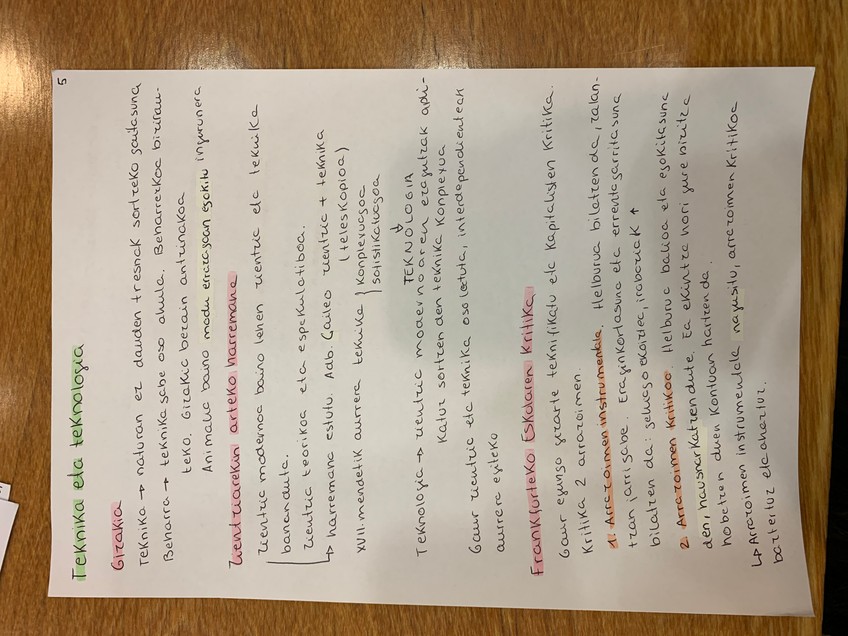 5
Teknika eta teknologia
Gizakia
Teknika → naturan ez dauden tresnak sortzeko gaitasuna
Beharra → teknika gabe oso ahula. Beharrezkoa bizirau-
teko. Gizakia bezain antzinakoa
Animalia baino modu errazagoan egokitu ingurunera
Zientziarekin arteko harremana
Zientzia modernoa baino lehen zientzia eta teknika
banandula.
Zientzia teorikoa eta espekulatiboa.
↳ harremana estutu. Adb. Galileo zientzia + teknika
(teleskopioa)
XVII. mendetik aurrera teknika } Konplexuagoa
sofistikatuagoa
↓
TEKNOLOGIA
Teknologia → zientzia modernoaren ezagutzak apli-
katuz sortzen den teknika konplexua
Gaur zientzia eta teknika oso lotuta, interdependienteak
aurrera egiteko
Frankfurteko Eskolaren Kritika
Gaur egungo gizarte teknifikatu eta kapitalisten kritika.
Kritika 2 arrazoimen.
1. Arrazoimen instrumentala. Helburua bilatzen da, zalan-
tzan jarri gabe. Eraginkortasuna eta errentagarritasuna
bilatzen da: gehiago ekoiztea, irabaziak ↑
2. Arrazoimen kritikoa. Helburua balioa eta egokitasuna
den, hausnarkatzen dute. Ea ekintza hori gure bizitza
hobetzen duen kontuan hartzen da.
↳ Arrazoimen instrumentala nagusitu, arrazoimen kritikoa
baztertuz eta ahaztuz.